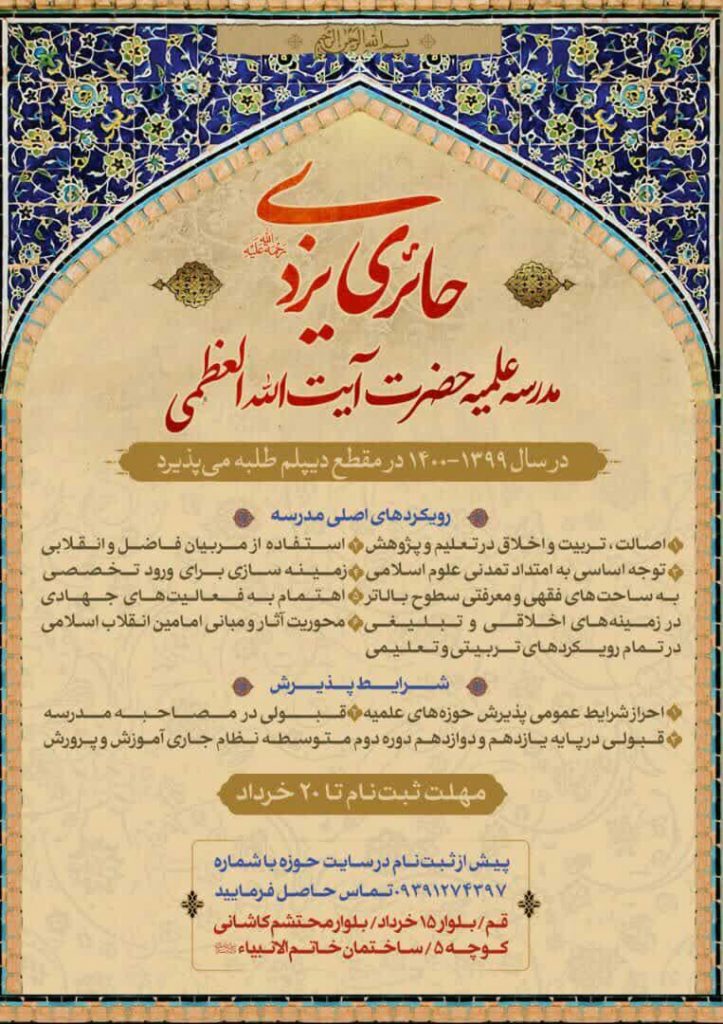 بسم الله الرحمن الرحیم
حائری یزدی
رحمة الله علیه
مدرسه علمیه حضرت آیت الله العظمی
در سال ۱۳۹۹-۱۴۰۰ در مقطع دیپلم طلبه می‌پذیرد
رویکردهای اصلی مدرسه
۱ اصالت، تربیت و اخلاق در تعلیم و پژوهش ۲ استفاده از مربیان فاضل و انقلابی
۳ توجه اساسی به امتداد تمدنی علوم اسلامی ۴ زمینه سازی برای ورود تخصصی
به ساحت‌های فقهی و معرفتی سطوح بالاتر ۵ اهتمام به فعالیت‌های جهادی
در زمینه‌های اخلاقی و تبلیغی ۶ محوریت آثار و مبانی امامین انقلاب اسلامی
در تمام رویکردهای تربیتی و تعلیمی
شرایط پذیرش
۱ احراز شرایط عمومی پذیرش حوزه‌های علمیه ۲ قبولی در مصاحبه مدرسه
۳ قبولی در پایه یازدهم و دوازدهم دوره دوم متوسطه نظام جاری آموزش و پرورش
مهلت ثبت‌نام تا ۲۰ خرداد
پیش از ثبت‌نام در سایت حوزه با شماره
۰۹۳۹۱۲۷۴۳۹۷ تماس حاصل فرمایید
قم / بلوار ۱۵ خرداد / بلوار محتشم کاشانی
کوچه ۵ / ساختمان خاتم الانبیاء